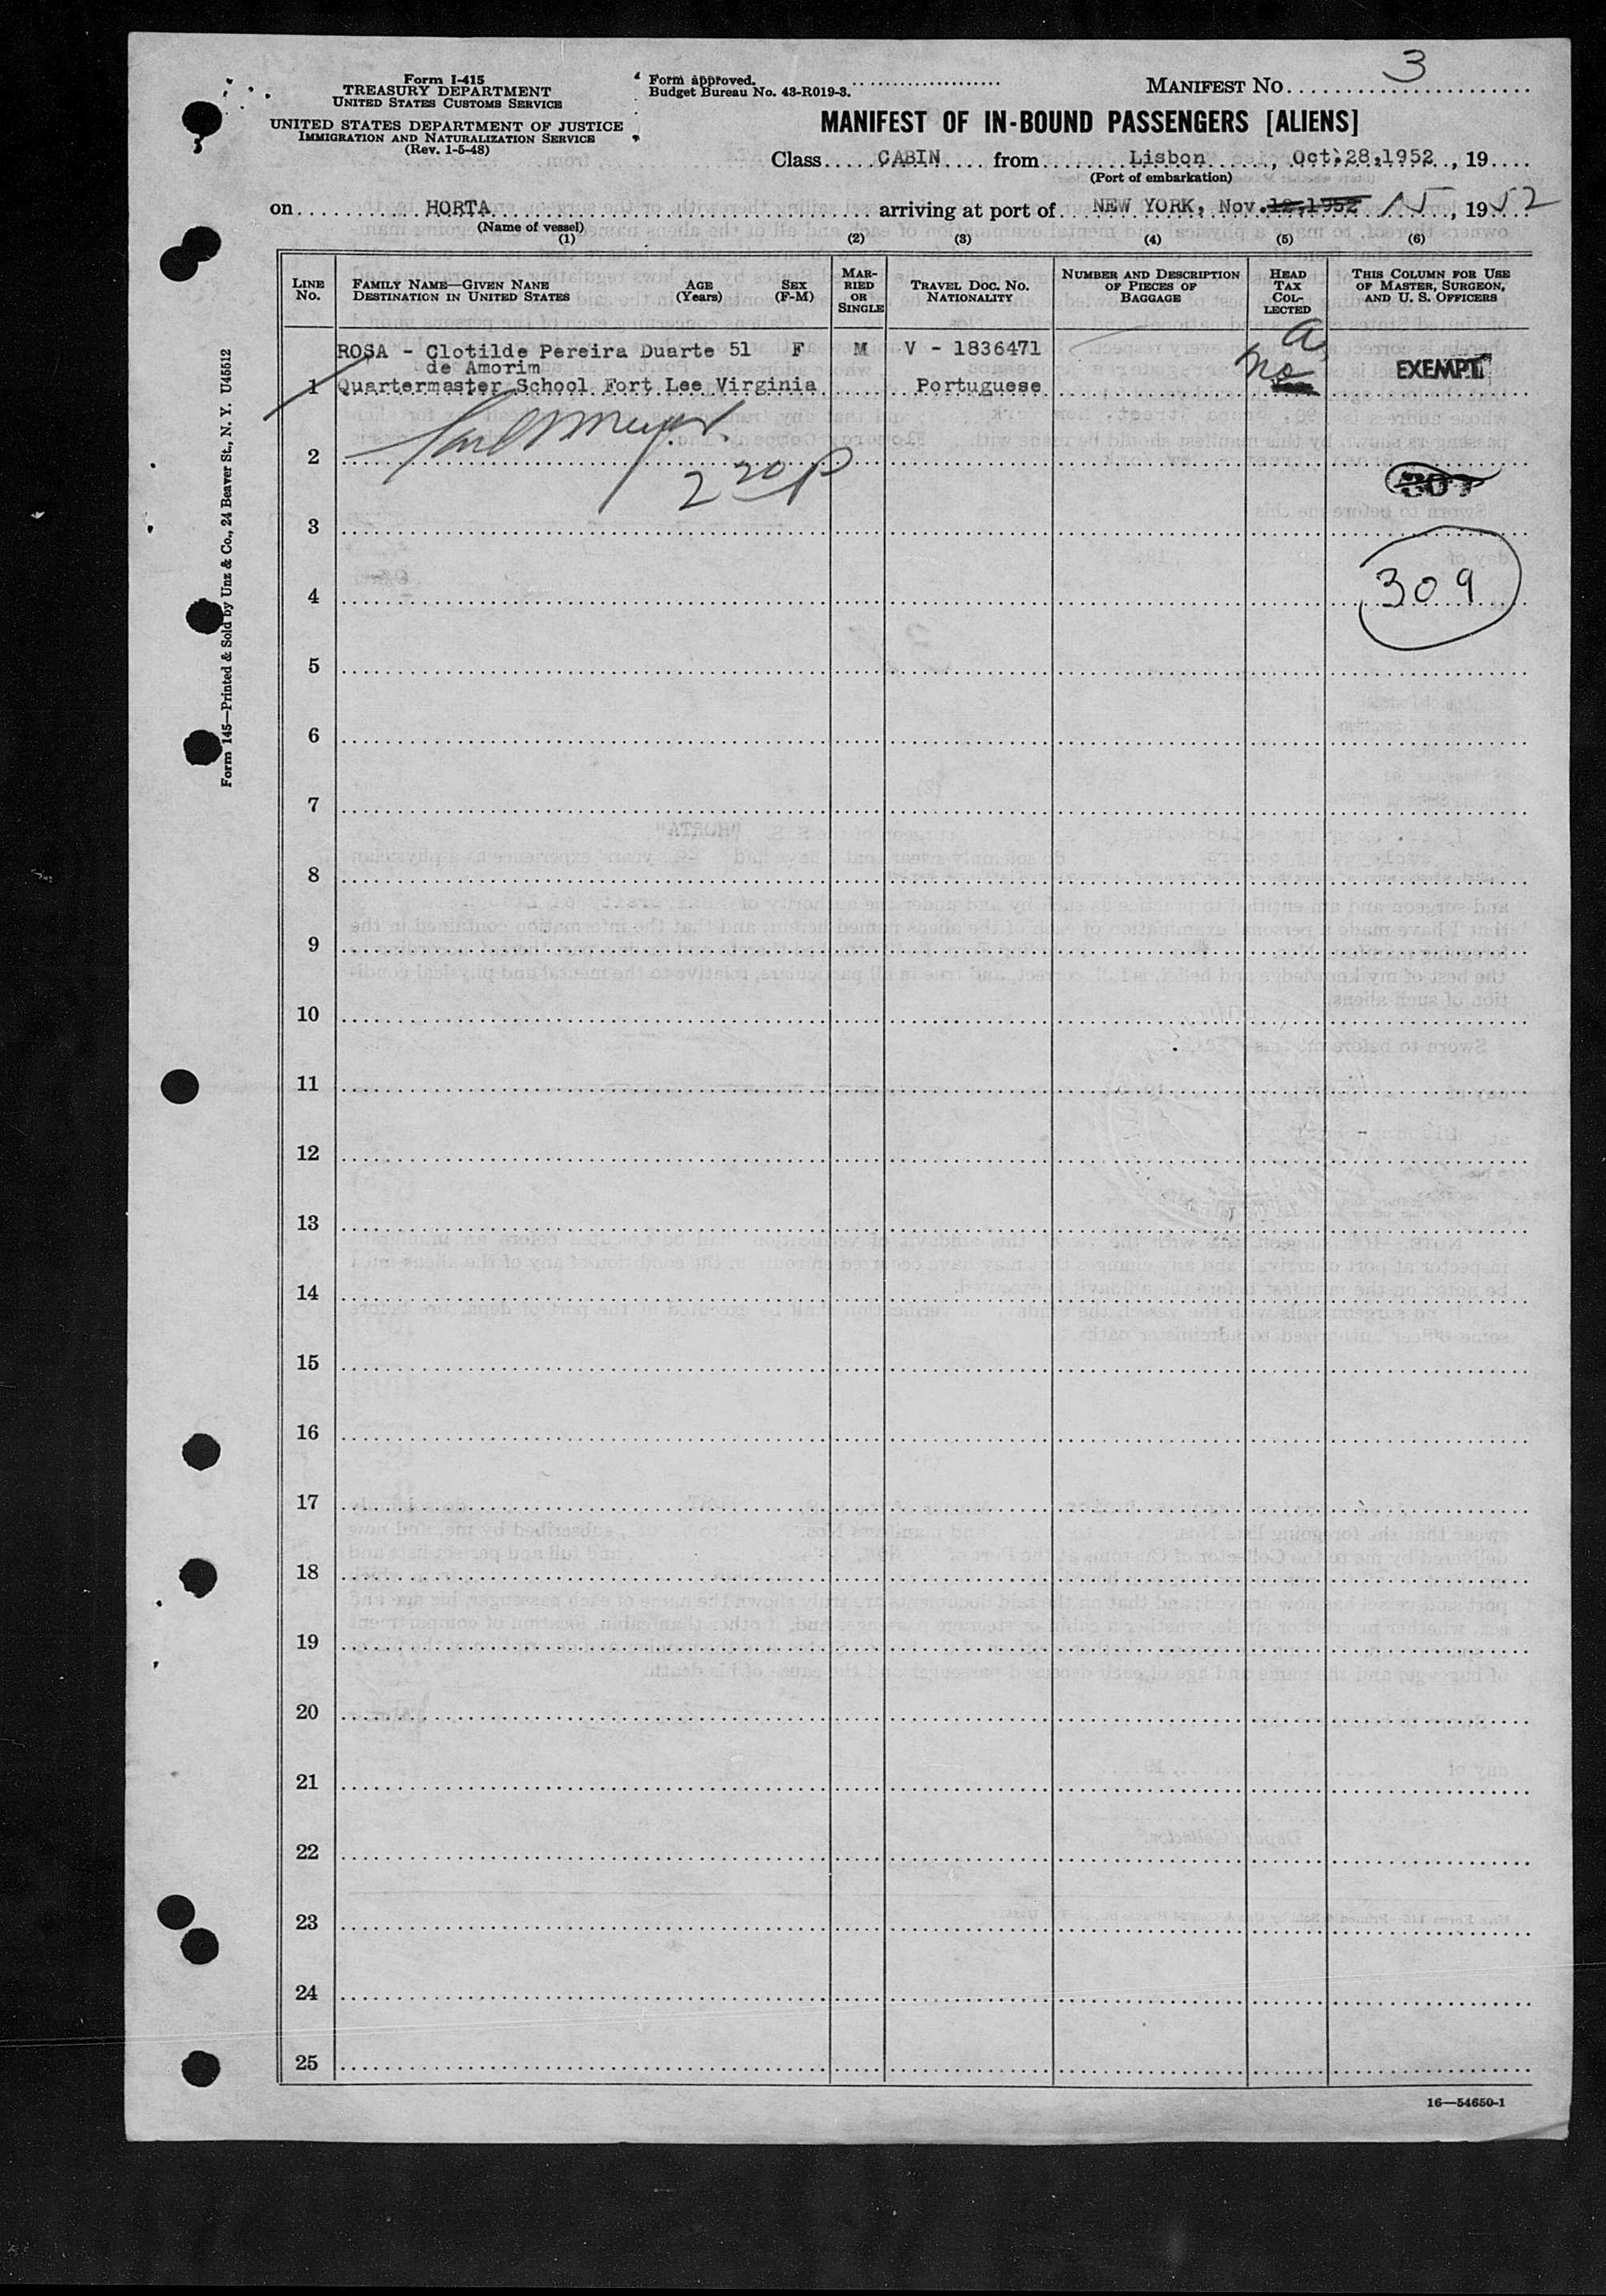 Form I-415
TREASURY DEPARTMENT
UNITED STATES CUSTOMS SERVICE
UNITED STATES DEPARTMENT OF JUSTICE
IMMIGRATION AND NATURALIZATION SERVICE
(Rev. 1-5-48)
Form approved.
Budget Bureau No. 43-R019-3.
MANIFEST NO. 3
MANIFEST OF IN-BOUND PASSENGERS [ALIENS]
Class CABIN from Lisbon, Oct.28,1952, 19
(Port of embarkation)
on HORTA arriving at port of NEW YORK, Nov. 12,1952 15, 1952
(Name of vessel)
(1) (2) (3) (4) (5) (6)
LINE No. FAMILY NAME—GIVEN NANE DESTINATION IN UNITED STATES AGE (Years) SEX (F-M) MARRIED OR SINGLE TRAVEL DOC. NO. NATIONALITY NUMBER AND DESCRIPTION OF PIECES OF BAGGAGE HEAD TAX COLLECTED THIS COLUMN FOR USE OF MASTER, SURGEON, AND U. S. OFFICERS
ROSA - Clotilde Pereira Duarte 51 F M V - 1836471
de Amorim
1 Quartermaster School Fort Lee Virginia Portuguese no EXEMPT
2 2 20 P
3
4 309
5
6
7
8
9
10
11
12
13
14
15
16
17
18
19
20
21
22
23
24
25
16—54650-1
Form 145—Printed & Sold by Unz & Co., 24 Beaver St., N. Y. U45512